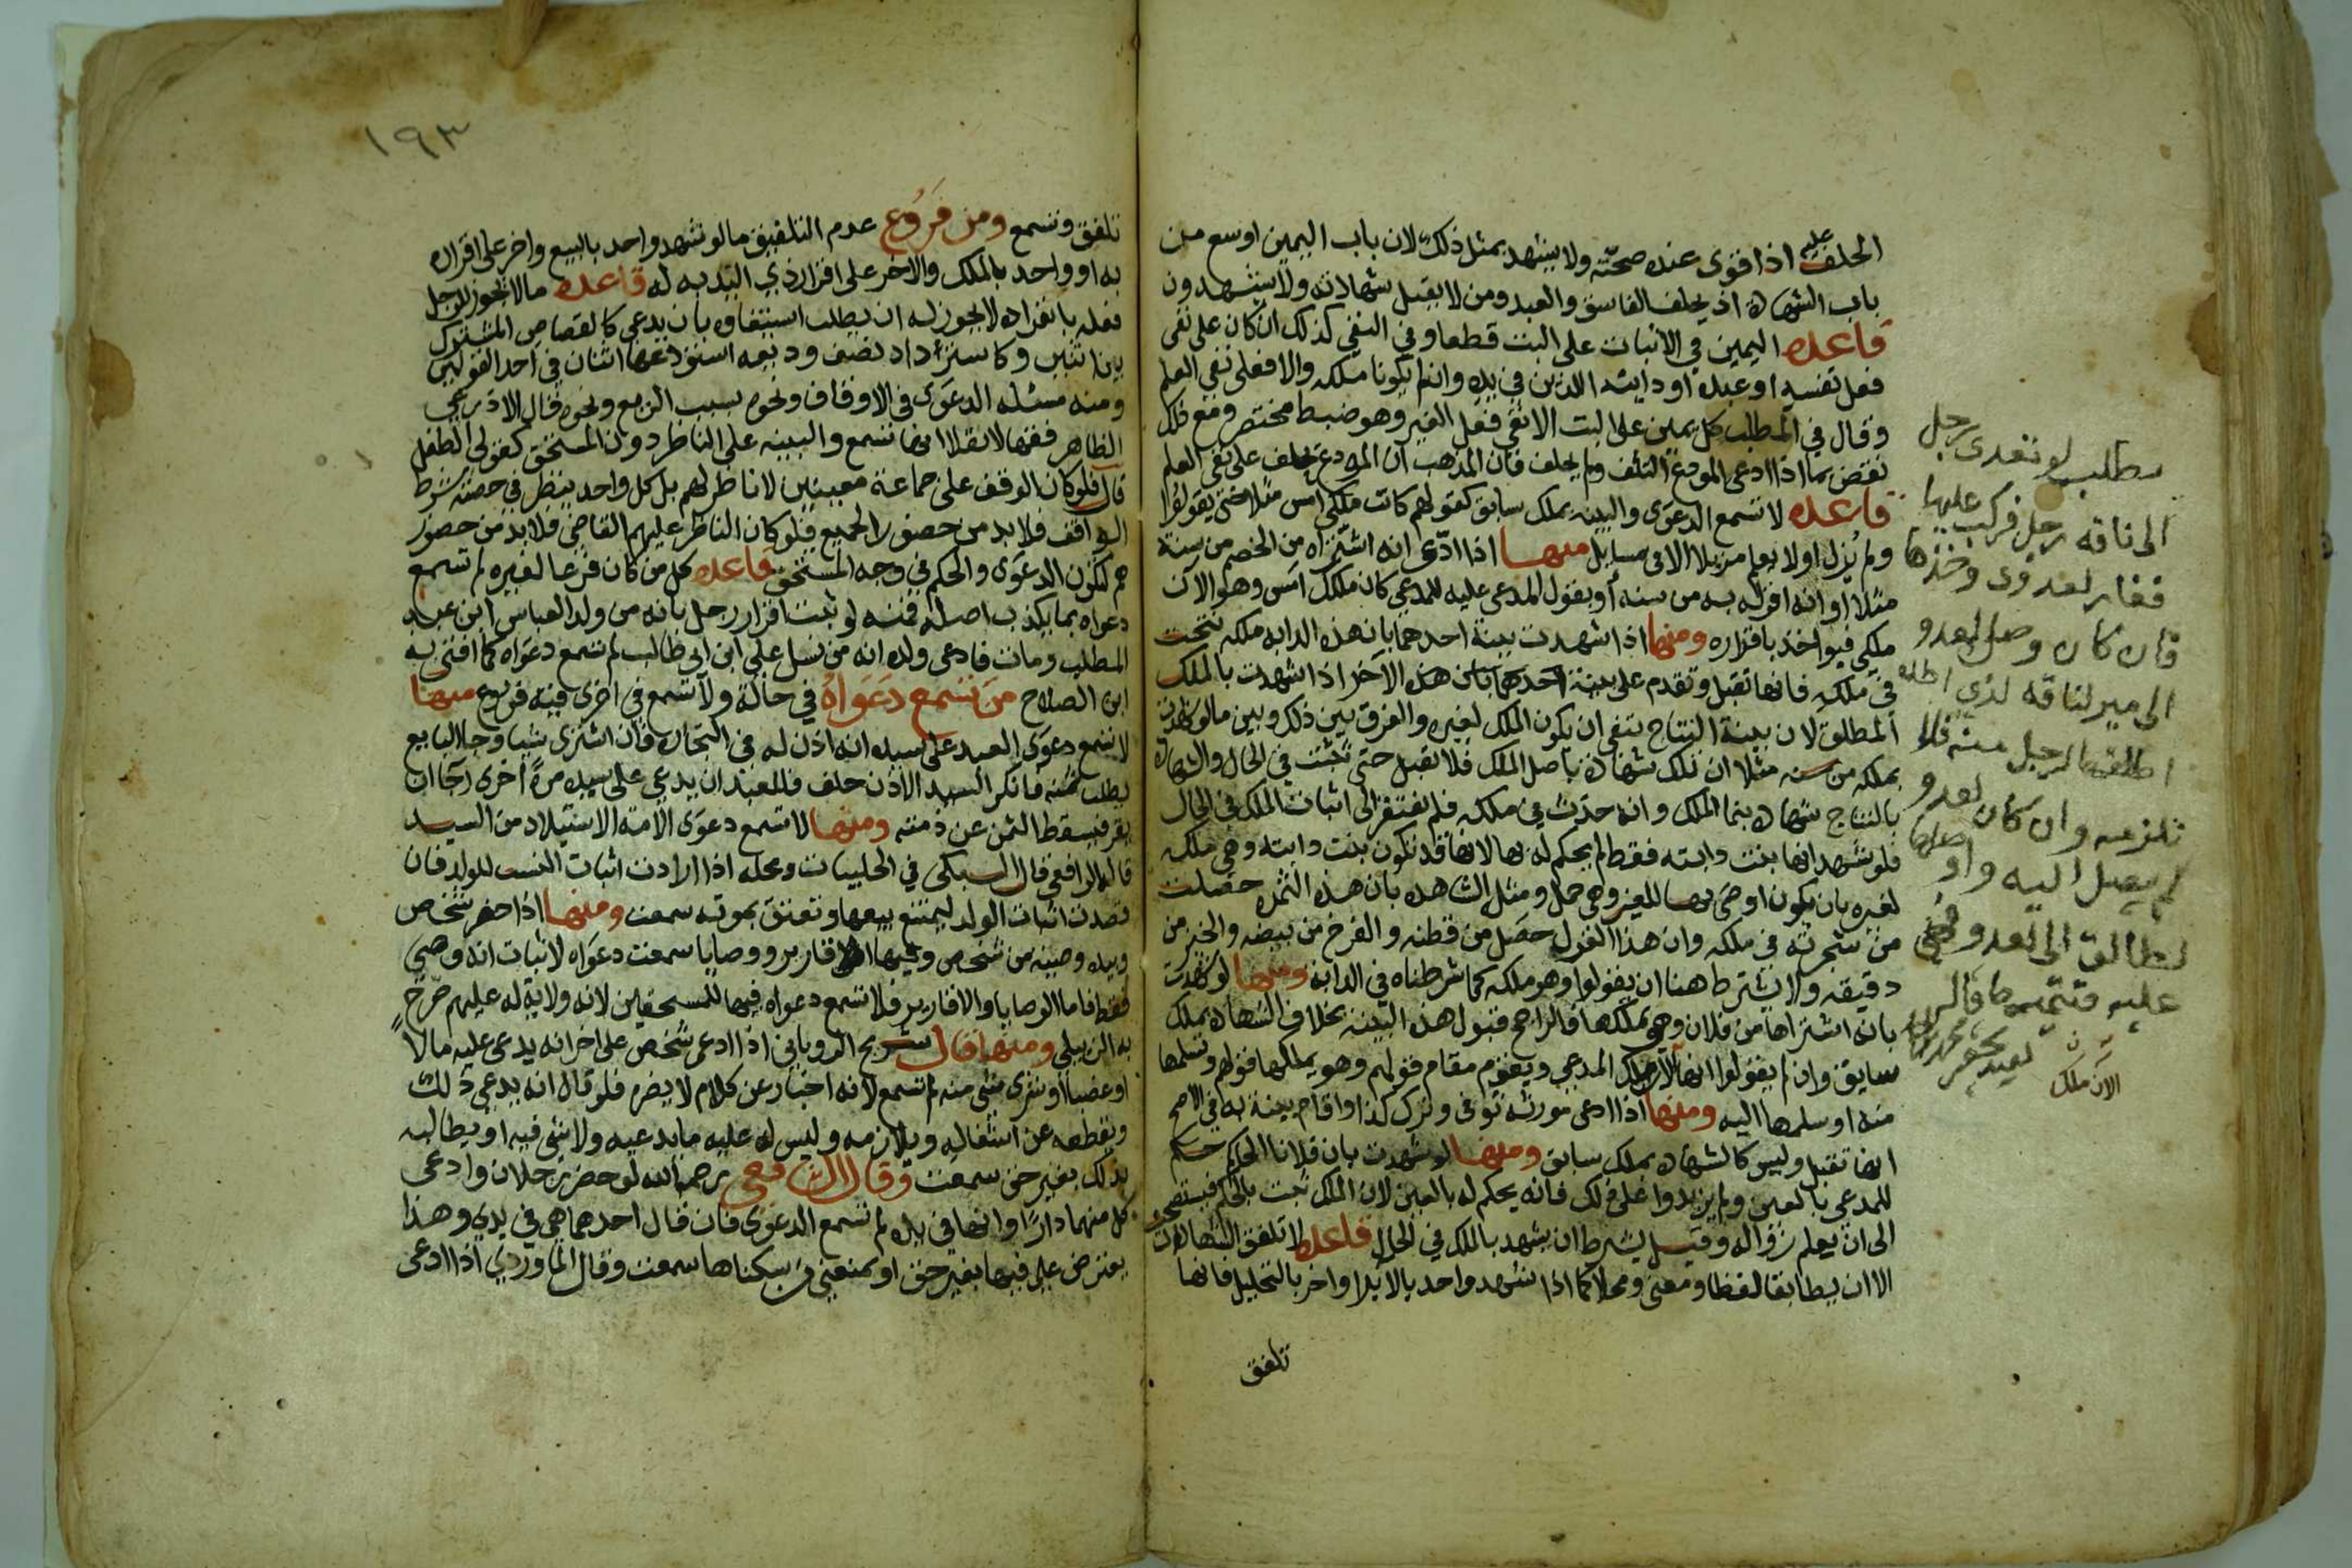 الحلف عليه اذا قوى عنده صحته ولا يشهد بمثل ذلك لان باب اليمين اوسع من
باب الشهادة اذ يحلف الفاسق والعبد ومن لا يقبل شهادته ولا يشهدون
قاعدة اليمين في الاثبات على البت قطعا وفي النفي كذلك ان كان على نفي
فعل نفسه او عبده او دابته اللذين في يده وان لم يكونا ملكه والا فعلى نفي العلم
وقال في المطلب كل يمين على البت الا نفي فعل الغير وهو ضبط مختصر ومع ذلك
نقض بما اذا ادعى المودع التلف ولم يحلف فان المذهب ان المودع يحلف على نفي العلم
قاعدة لا تسمع الدعوى والبينة بملك سابق كقولهم كانت ملكي امس مثلا حتى يقولوا
ولم يزل او لا نعلم مزيلا الا في مسايل منها اذا ادعى انه اشتراه من الخصم من سنة
مثلا او انه اقر له به من سنة او يقول المدعى عليه للمدعي كان ملكك امس وهو الآن
ملكي فيواخذ باقراره ومنها اذا شهدت بينة احدهما بان هذه الدابه ملكه نتجت
في ملكه فانها تقبل وتقدم على بينة احدهما بان هذه الآخر اذا شهدت بالملك
المطلق لان بينة النتاج تنفي ان يكون الملك لغيره والفرق بين ذلك وبين ما لو شهدت
بملكه من سنه مثلا ان تلك شهادة باصل الملك فلا تقبل حتى تثبت في الحال والشهادة
بالنتاج شهادة بنما الملك وانه حدث في ملكه فلم تفتقر الى اثبات الملك في الحال
فلو شهد انها بنت دابته فقط لم يحكم له بها لانها قد تكون بنت دابته وهي ملك
لغيره بان يكون اوصى بها للغير وهي حمل ومثل الشاهده بان هذه الثمره حصلت
من شجرته في ملكه وان هذا الغزل حصل من قطنه والفرخ من بيضه والخبز من
دقيقه ولا يشترط هنا ان يقولوا وهو ملكه كما شرطناه في الدابة ومنها لو شهدت
بانه اشتراها من فلان وهو يملكها فالراجح قبول هذه البينة بخلاف الشهادة بملك
سابق وان لم يقولوا انها الآن ملك المدعي ويقوم مقام قولهم وهو يملكها قولهم وتسلمها
منه او سلمها اليه ومنها اذا ادعى مورثه توفى وترك كذا واقام بينة به في الاصح
انها تقبل وليس كالشهادة بملك سابق ومنها لو شهدت بان فلانا الحاكم حكم
للمدعي بالعين ولم يزيدوا على ذلك فانه يحكم له بالعين لان الملك ثبت بالحكم فيستصحب
الى ان يعلم زواله وقيل يشترط ان يشهد بالملك في الحال قاعدة لا تلفق الشهادات
الا ان يطابقا لفظا ومعنى ومحلا كما اذا شهد واحد بالابرا واخر بالتحليل فانها
تلفق
مطلب لو تعدى رجل
الى ناقه رجل فركب عليها
فان كان وصل العدو
الان ملك
١٩٣
تلفق وتسمع ومن فروع عدم التلفيق ما لو شهد واحد بالبيع واخر على اقراره
به او واحد بالملك والاخر على اقرار ذي اليد به له قاعدة ما لا يجوز للرجل
فعله بانفراده لا يجوز له ان يطلب استيفاوه بان يدعي كالقصاص المشترك
بين اثنين وكاسترداد نصف وديعه استودعها اثنان في احد القولين
ومنه مسئله الدعوى في الاوقاف ونحوه بسبب الريع ونحوه قال الاذرعي
الظاهر فقها لا نقلا انها تسمع والبينه على الناظر دون المستحق كفولي الطفل
قال فلو كان الوقف على جماعة معينين لا ناظر لهم بل كل واحد ينظر في حصته شرط
الواقف فلا بد من حضور الجميع فلو كان الناظر عليهم القاضي فلا بد من حضور
هم لتكون الدعوى والحكم في وجه المستحق قاعده كل من كان فرعا لغيره لم تسمع
دعواه بما يكذب اصله فمنه لو ثبت اقرار رجل بانه من ولد العباس ابن عبد
المطلب ومات فادعى ولده انه من نسل علي ابن ابي طالب لم تسمع دعواه كما افتى به
ابن الصلاح من تسمع دعواه في حالة ولا تسمع في اخرى فيه فروع منها
لا تسمع دعوى العبد على سيده انه اذن له في التجارة فان اشترى شيا وجا البايع
يطلب ثمنه فانكر السيد الاذن حلف فللعبد ان يدعي على سيده مرة اخرى رجا ان
يقر فيسقط الثمن عن ذمته ومنها لا تسمع دعوى الامة الاستيلاد من السيد
قاله الرافعي قال السبكى في الحلبيات ومحله اذا ارادت اثبات النسب للولد فان
قصدت اثبات الولد ليمتنع بيعها وتعتق بموته سمعت ومنها اذا حضر شخص
وبيده وصية من شخص وفيها اقارير ووصايا سمعت دعواه لاثبات انه وصي
فقط فاما الوصايا والاقارير فلا تسمع دعواه فيها للمستحقين لانه ولاية له عليهم صرح
به الزبيلي ومنها قال شريح الروياني اذا ادعى شخص على اخر انه يدعي عليه مالا
او غصبا او شرى شي منه لم تسمع لانه اخبار عن كلام لا يضر فلو قال انه يدعي ذلك
ويقطعه عن اشغاله ويلازمه وليس له عليه ما يدعيه ولا شي فيه او يطالبه
بذلك بغير حق سمعت وقال الشافعي رحمه الله لو حضر رجلان وادعى
كل منهما دارا وانها في يده لم تسمع الدعوى فان قال احدهما هي في يدي وهذا
يعترض علي فيها بغير حق او يمنعني من سكناها سمعت وقال الماوردي اذا ادعى